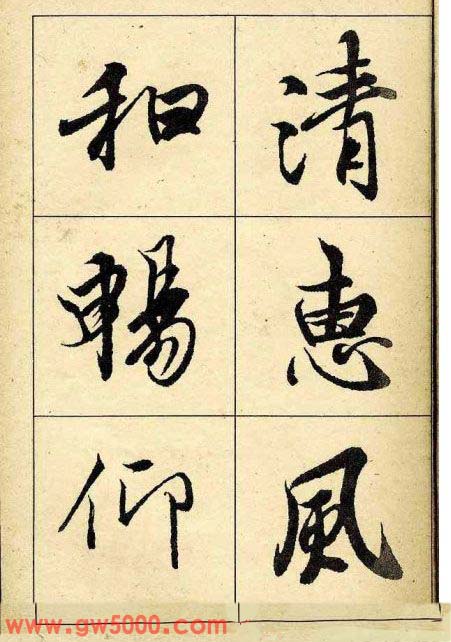 清惠風
和暢仰
www.gw5000.com